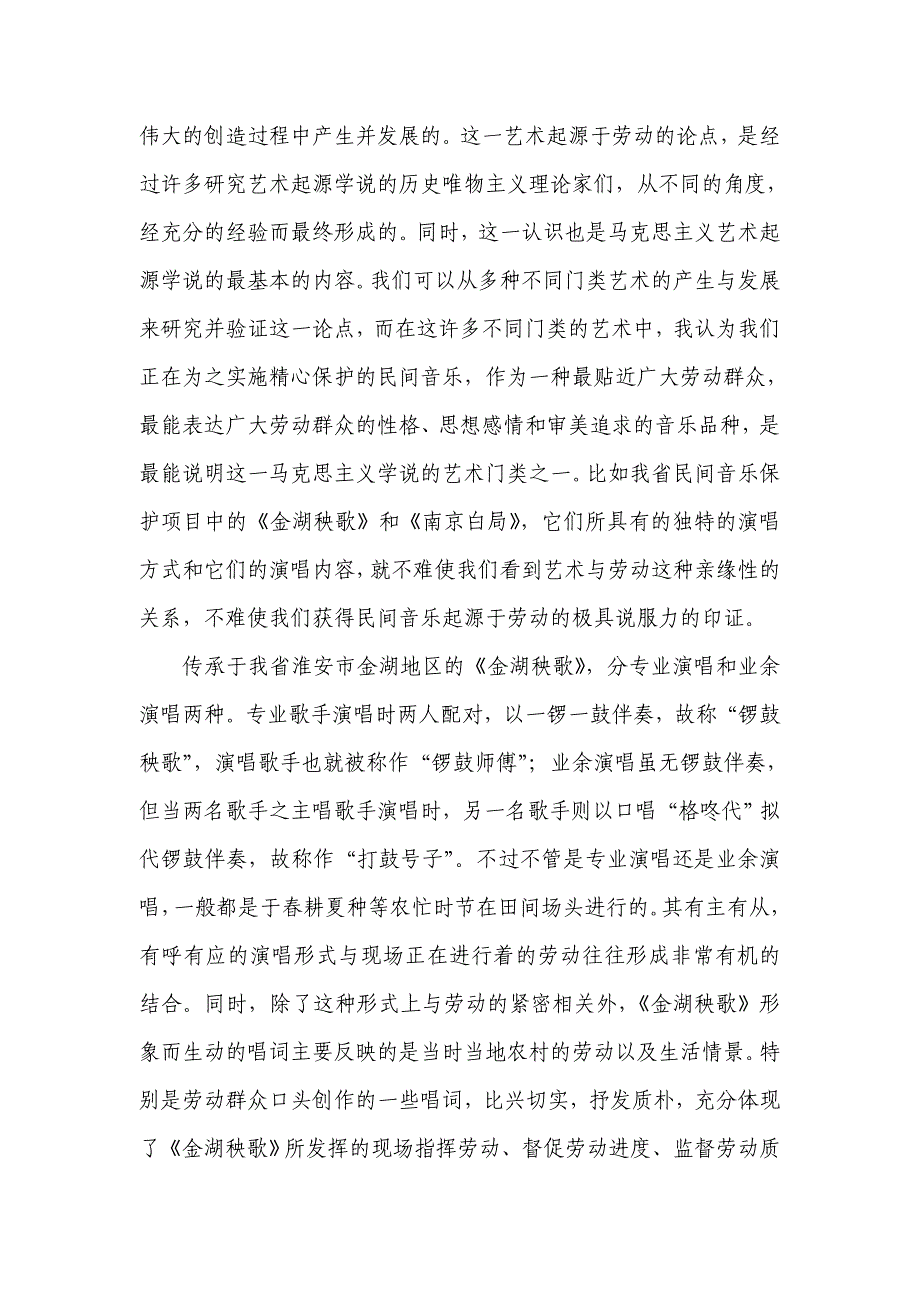 伟大的创造过程中产生并发展的。这一艺术起源于劳动的论点，是经
过许多研究艺术起源学说的历史唯物主义理论家们，从不同的角度，
经充分的经验而最终形成的。同时，这一认识也是马克思主义艺术起
源学说的最基本的内容。我们可以从多种不同门类艺术的产生与发展
来研究并验证这一论点，而在这许多不同门类的艺术中，我认为我们
正在为之实施精心保护的民间音乐，作为一种最贴近广大劳动群众，
最能表达广大劳动群众的性格、思想感情和审美追求的音乐品种，是
最能说明这一马克思主义学说的艺术门类之一。比如我省民间音乐保
护项目中的《金湖秧歌》和《南京白局》，它们所具有的独特的演唱
方式和它们的演唱内容，就不难使我们看到艺术与劳动这种亲缘性的
关系，不难使我们获得民间音乐起源于劳动的极具说服力的印证。
传承于我省淮安市金湖地区的《金湖秧歌》，分专业演唱和业余
演唱两种。专业歌手演唱时两人配对，以一锣一鼓伴奏，故称“锣鼓
秧歌”，演唱歌手也就被称作“锣鼓师傅”；业余演唱虽无锣鼓伴奏，
但当两名歌手之主唱歌手演唱时，另一名歌手则以口唱“格咚代”拟
代锣鼓伴奏，故称作“打鼓号子”。不过不管是专业演唱还是业余演
唱，一般都是于春耕夏种等农忙时节在田间场头进行的。其有主有从，
有呼有应的演唱形式与现场正在进行着的劳动往往形成非常有机的
结合。同时，除了这种形式上与劳动的紧密相关外，《金湖秧歌》形
象而生动的唱词主要反映的是当时当地农村的劳动以及生活情景。特
别是劳动群众口头创作的一些唱词，比兴切实，抒发质朴，充分体现
了《金湖秧歌》所发挥的现场指挥劳动、督促劳动进度、监督劳动质